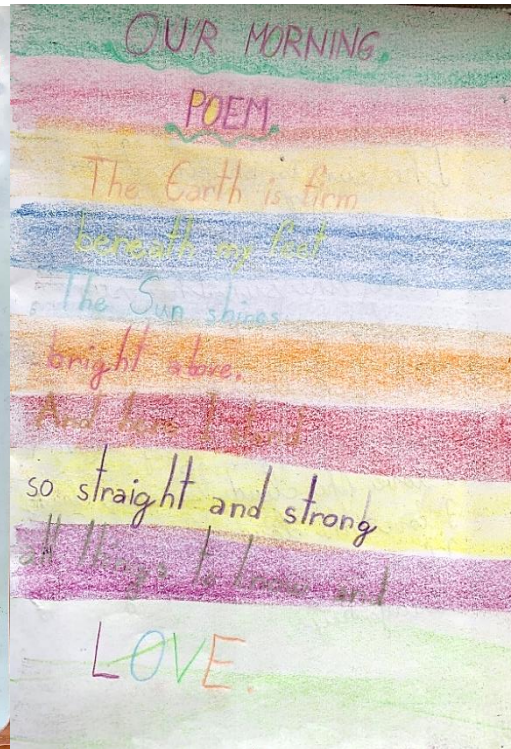 OUR MORNING
POEM
The Earth is firm
beneath my feet
The Sun shines
bright above,
And here I stand
so straight and strong
all things to know and
LOVE.